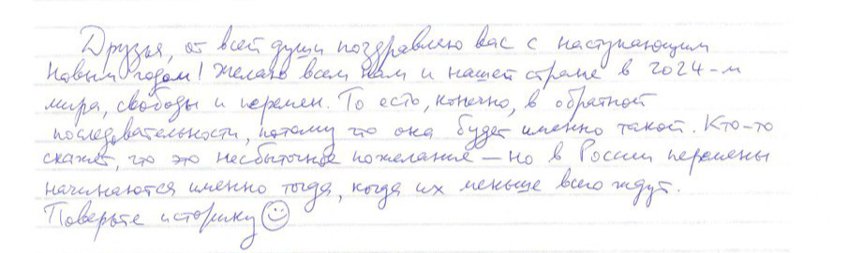 Друзья, от всей души поздравляю вас с наступающим
Новым годом! Желаю всем нам и нашей стране в 2024-м
мира, свободы и перемен. То есть, конечно, в обратной
последовательности, потому что она будет именно такой. Кто-то
скажет, что это несбыточное пожелание — но в России перемены
начинаются именно тогда, когда их меньше всего ждут.
Поверьте историку ☺